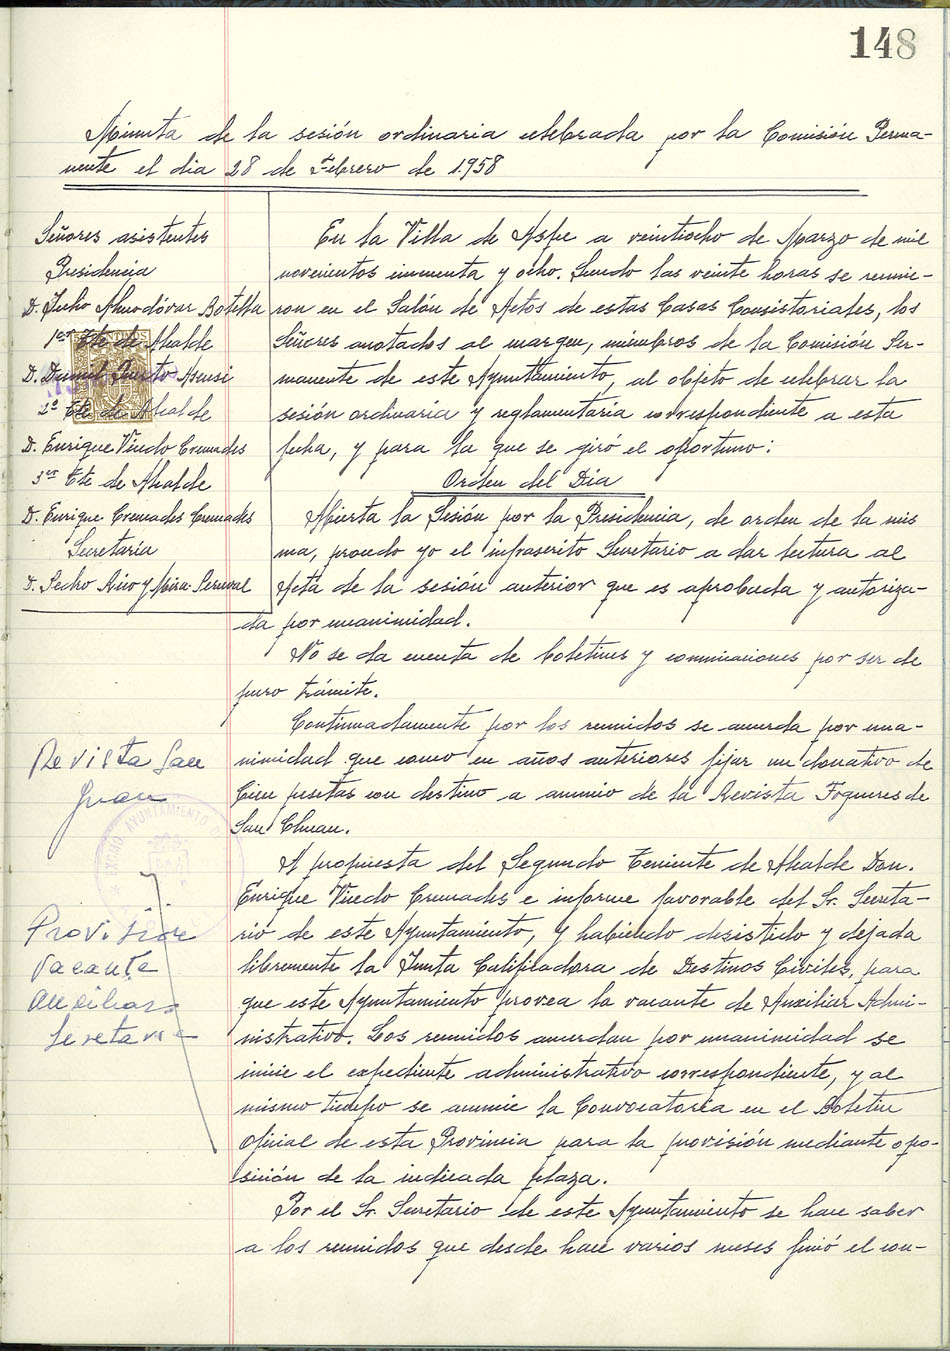 148
Minuta de la sesión ordinaria celebrada por la Comisión Perma-
nente el dia 28 de Febrero de 1.958
Señores asistentes
Presidencia
D. Julio Almodóvar Botella
1er Tte de Alcalde
D. Asensi
2º Tte de Alcalde
D. Enrique Viudo Cremades
3er Tte de Alcalde
D. Enrique Cremades Cremades
Secretaría
D. Pedro y Mira-Perceval
En la Villa de Aspe a veintiocho de Marzo de mil
novecientos cincuenta y ocho. Siendo las veinte horas se reunie-
ron en el Salón de Actos de estas Casas Consistoriales, los
Señores anotados al margen, miembros de la Comisión Per-
manente de este Ayuntamiento, al objeto de celebrar la
sesión ordinaria y reglamentaria correspondiente a esta
fecha, y para la que se giró el oportuno:
Orden del Dia
Abierta la Sesión por la Presidencia, de orden de la mis
ma, procedo yo el infrascrito Secretario a dar lectura al
Acta de la sesión anterior que es aprobada y autoriza-
da por unanimidad.
No se da cuenta de boletines y comunicaciones por ser de
puro trámite.
Continuadamente por los reunidos se acuerda por una-
nimidad que como en años anteriores fijar un donativo de
Cien pesetas con destino a anuncio de la Revista Fogueres de
San Chuan.
A propuesta del Segundo Teniente de Alcalde Don.
Enrique Viudo Cremades e informe favorable del Sr. Secreta-
rio de este Ayuntamiento, y habiendo desistido y dejada
libremente la Junta Calificadora de Destinos Civiles, para
que este Ayuntamiento provea la vacante de Auxiliar Admi-
nistrativo. Los reunidos acuerdan por unanimidad se
inicie el expediente administrativo correspondiente, y al
mismo tiempo se anuncie la Convocatoria en el Boletin
Oficial de esta Provincia para la provisión mediante opo-
sición de la indicada plaza.
Por el Sr. Secretario de este Ayuntamiento se hace saber
a los reunidos que desde hace varios meses finó el con-
Revista San
Juan
AYUNTAMIENTO
Provisión
Vacante
Auxiliar
Secretaria